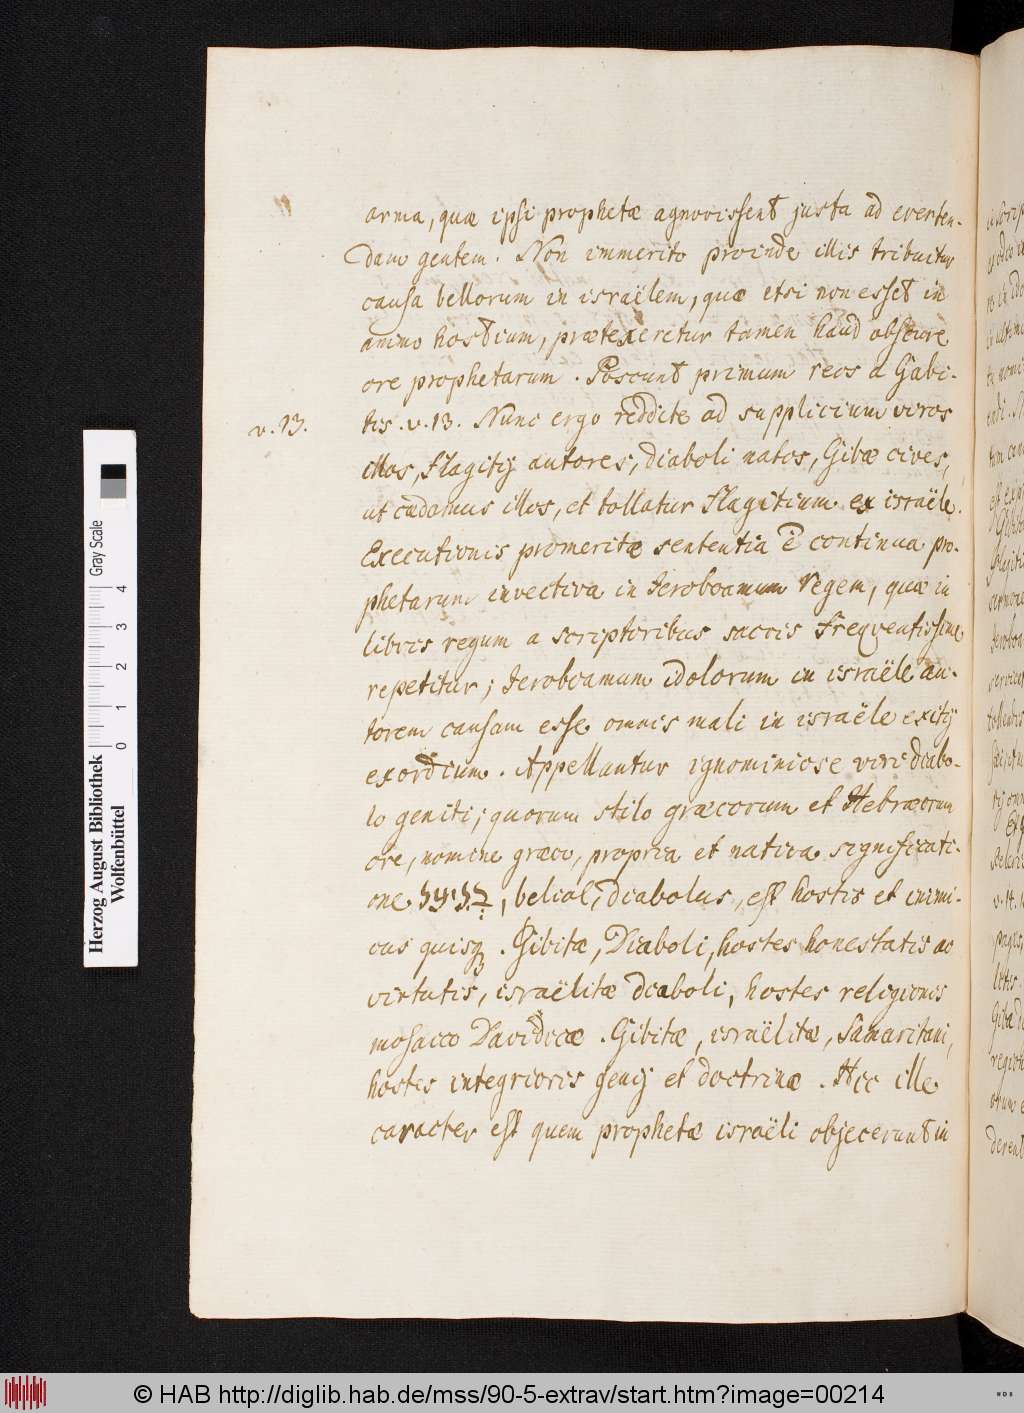 arma, quæ ipsi prophetæ agnovissent justa ad everten-
dam gentem. Non immerito proinde illis tribuitur
causa bellorum in israëlem, quæ etsi non esset in
animo hostium, prætexeretur tamen haud obscure
ore prophetarum. Poscunt primum reos a Gabi-
v. 13.
tis. v. 13. Nunc ergo reddite ad supplicium viros
illos, flagitij autores, diaboli natos, Gibæ cives,
ut cædamus illos, et tollatur flagitium ex israële.
Executionis promeritæ sententia ē continua pro-
phetarum invectiva in Jeroboamum regem, quæ in
libris regum a scriptoribus sacris frequentissime
repetitur; Jeroboamum idolorum in israële au-
torem causam esse omnis mali in israële exitij
exordium. Appellantur ignominiose viri diabo-
lo geniti; quorum stilo græcorum et Hebræorum
ore, nomine græco, propria et nativa significati-
one בליעל, belial, diabolus, est hostis et inimi-
cus quisq. Gibitæ, Diaboli, hostes honestatis ac
virtutis, israëlitæ diaboli, hostes religionis
mosaico Davidicæ. Gibitæ, israëlitæ, Samaritani,
hostes integrioris genij et doctrinæ. Hic ille
caracter est quem prophetæ israëli objecerunt in
Herzog August Bibliothek
Wolfenbüttel
0 1 2 3 4
Gray Scale
© HAB http://diglib.hab.de/mss/90-5-extrav/start.htm?image=00214